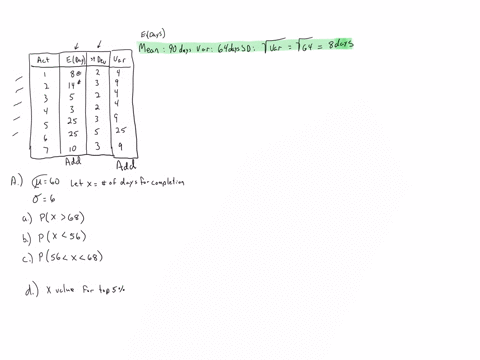 E(Days)
Mean: 90 days Var: 64 days SD: √Var = √64 = 8 days
Act E(Days) St Dev Var
1 8 2 4
2 14 3 9
3 5 2 4
4 3 2 4
5 25 3 9
6 25 5 25
7 10 3 9
Add Add
A.) μ=60 Let x = # of days for completion
σ=6
a) P(x >68)
b.) P(x < 56)
c.) P(56< x <68)
d.) x value for top 5%